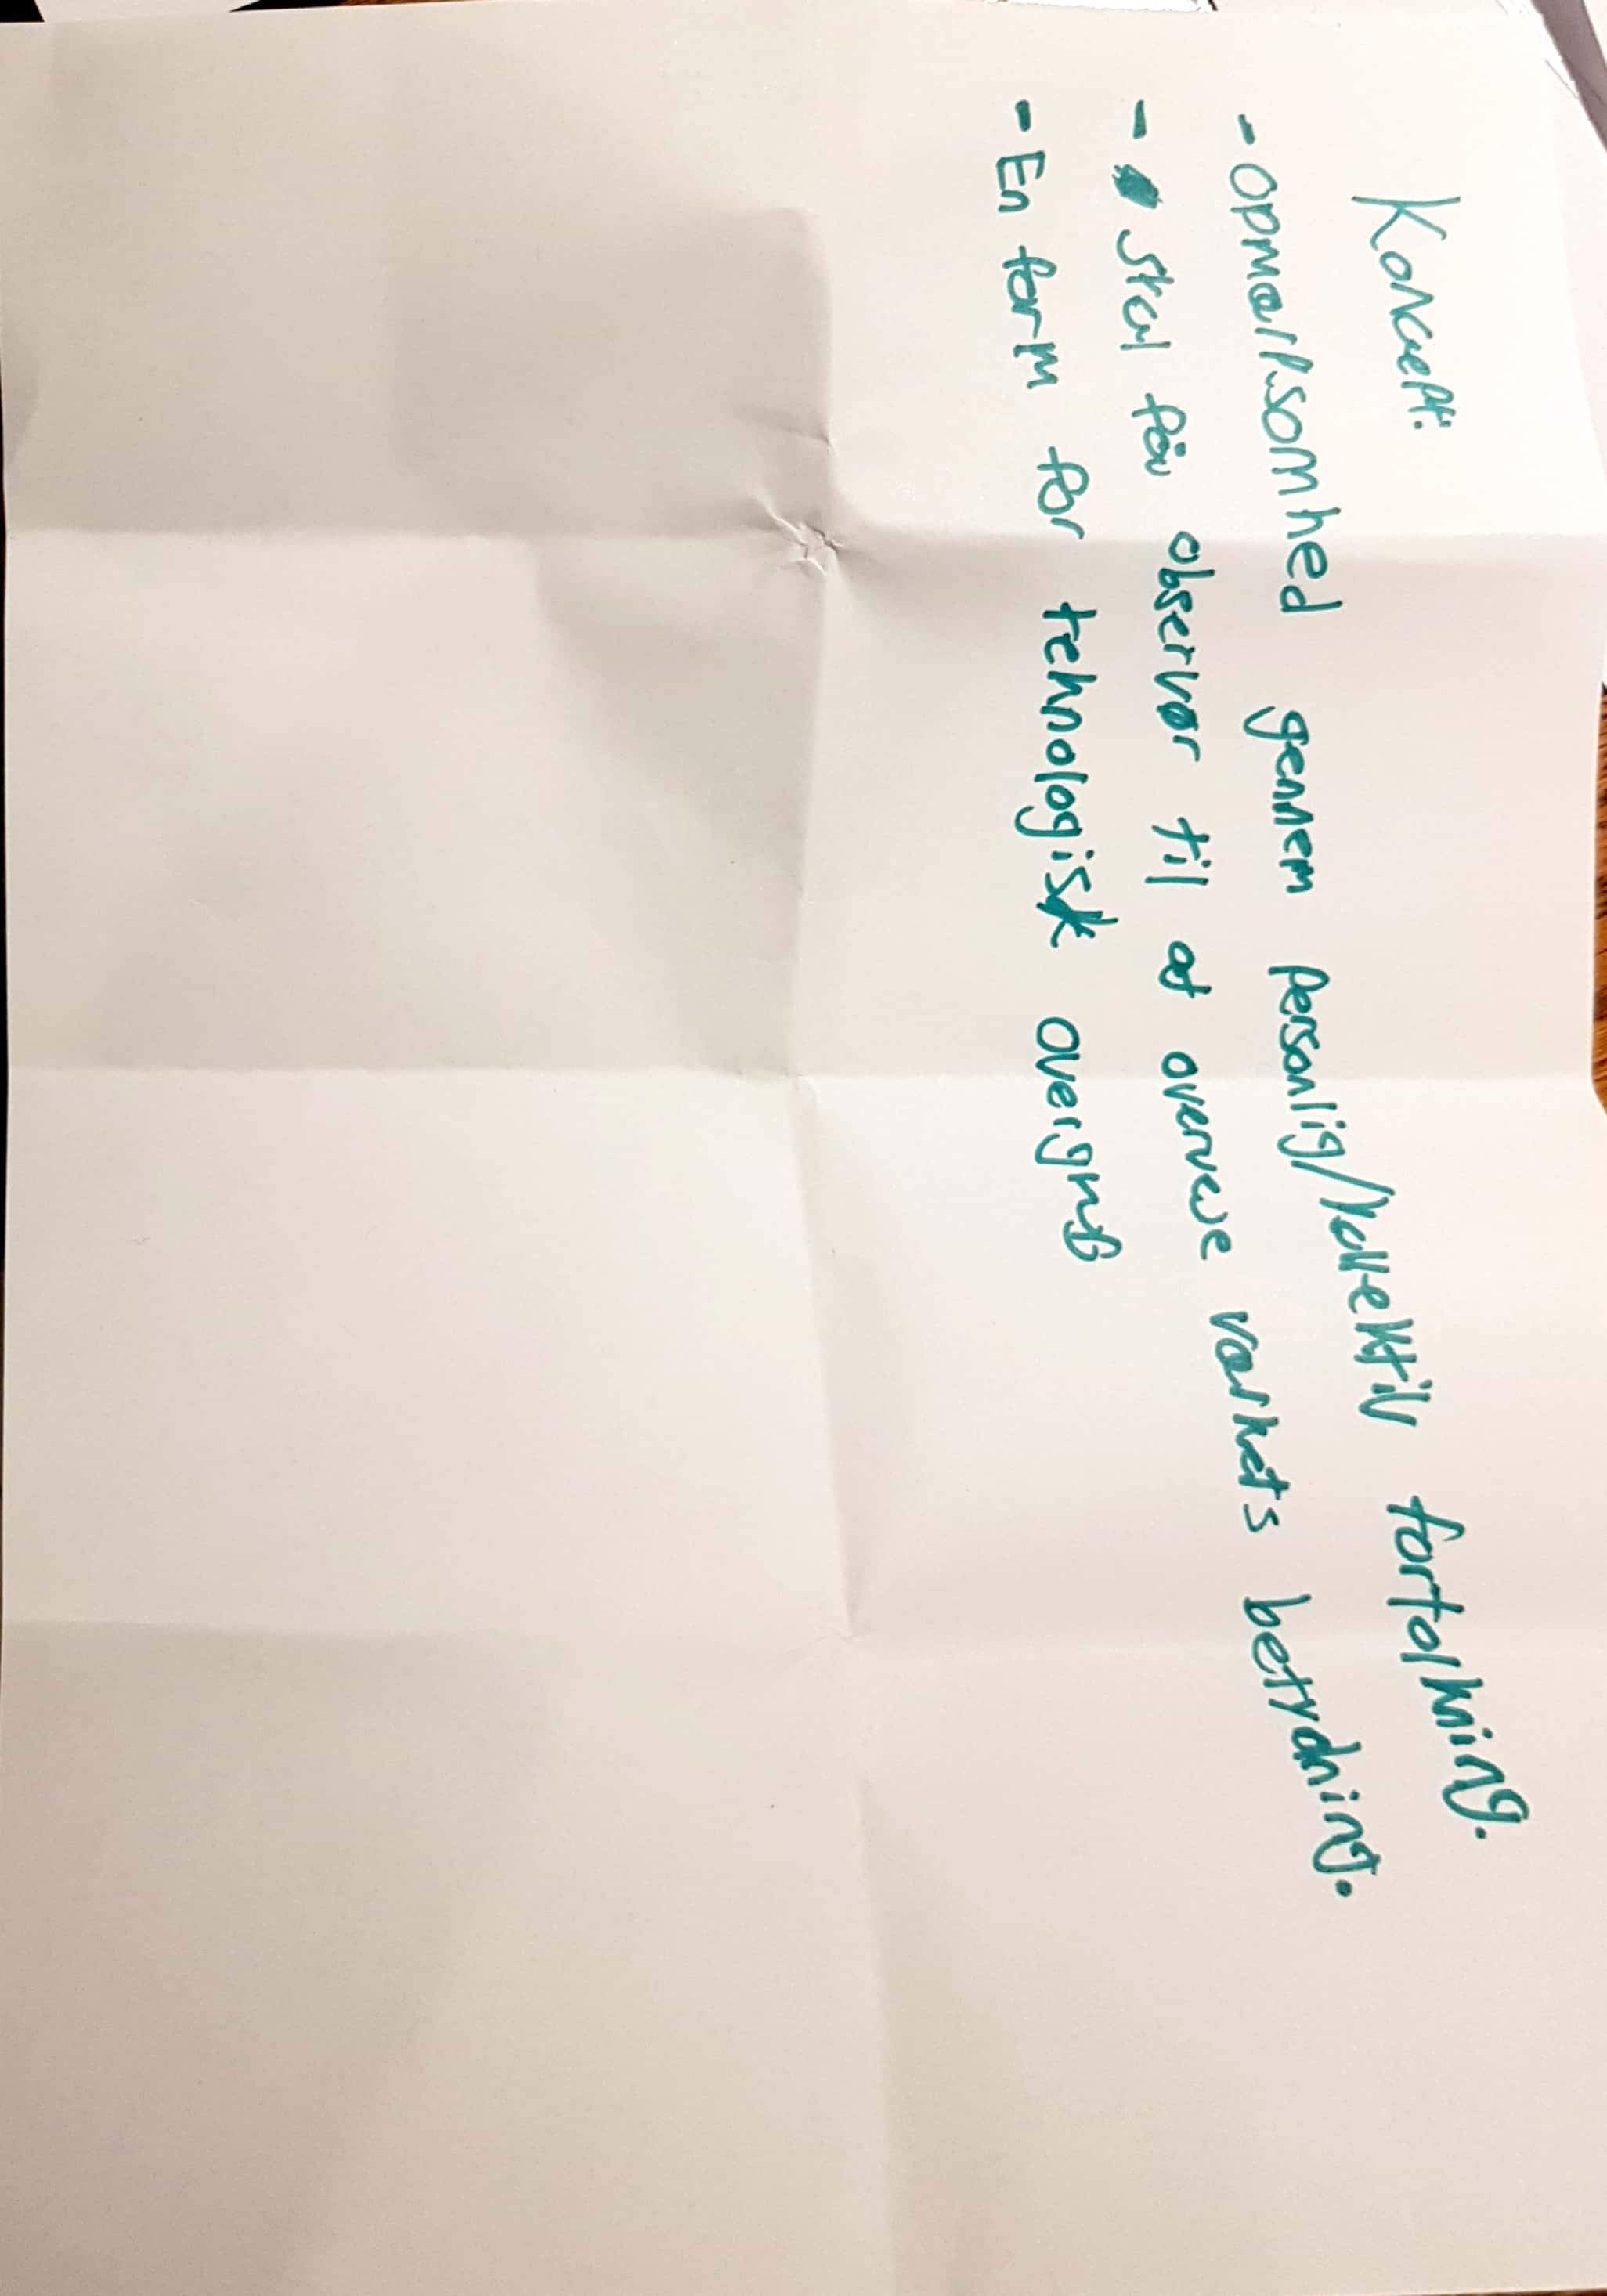 Koncept:
- Opmærksomhed gennem personlig/kollektiv fortolkning.
- Skal få observør til at overveje værkets betydning.
- En form for teknologisk overgreb